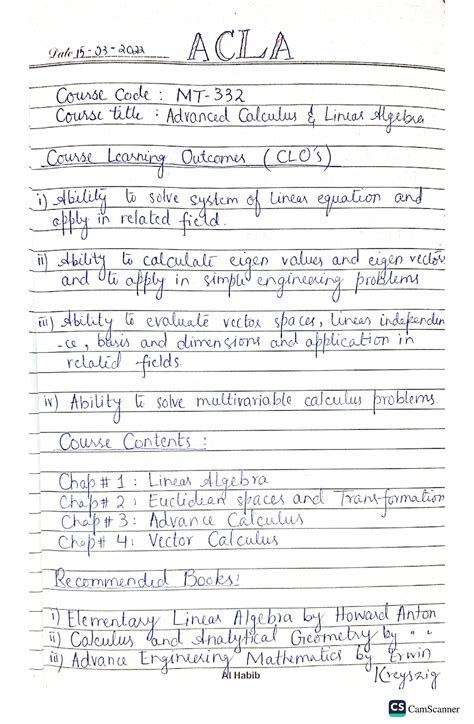 ACLA
Date 15-03-2022
Course Code : MT-332
Course title : Advanced Calculus & Linear Algebra
Course Learning Outcomes (CLO's)
i) Ability to solve system of linear equation and
apply in related field.
ii) Ability to calculate eigen values and eigen vectors
and to apply in simple engineering problems
iii) Ability to evaluate vector spaces, linear independen
-ce, basis and dimensions and application in
related fields.
iv) Ability to solve multivariable calculus problems.
Course Contents :
Chap # 1 : Linear Algebra
Chap # 2 : Euclidean spaces and Transformation
Chap # 3 : Advance Calculus
Chap # 4 : Vector Calculus
Recommended Books:
i) Elementary Linear Algebra by Howard Anton
ii) Calculus and Analytical Geometry by " "
iii) Advance Engineering Mathematics by Erwin
Kreyszig
Al Habib
CS CamScanner